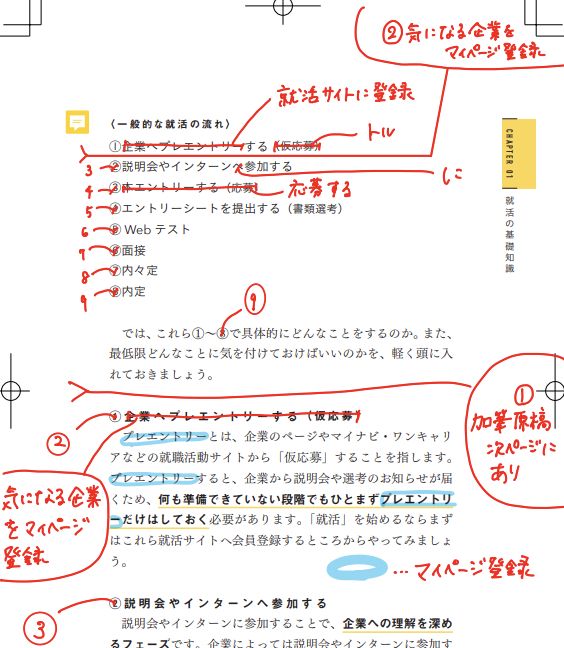 ②気になる企業を
マイページ登録
就活サイトに登録
〈一般的な就活の流れ〉
①企業へプレエントリーする（仮応募）
トル
3 ②説明会やインターンへ参加する
に
4 ③本エントリーする（応募）
応募する
5 ④エントリーシートを提出する（書類選考）
6 ⑤Webテスト
7 ⑥面接
8 ⑦内々定
9 ⑧内定
CHAPTER 01
就活の基礎知識
⑨
では、これら①～⑧で具体的にどんなことをするのか。また、
最低限どんなことに気を付けておけばいいのかを、軽く頭に入
れておきましょう。
①
加筆原稿
次ページに
あり
②
①企業へプレエントリーする（仮応募）
プレエントリーとは、企業のページやマイナビ・ワンキャリ
アなどの就職活動サイトから「仮応募」することを指します。
プレエントリーすると、企業から説明会や選考のお知らせが届
くため、何も準備できていない段階でもひとまずプレエントリ
ーだけはしておく必要があります。「就活」を始めるならまず
はこれら就活サイトへ会員登録するところからやってみましょ
う。
気になる企業
をマイページ
登録
…マイページ登録
③
②説明会やインターンへ参加する
説明会やインターンに参加することで、企業への理解を深め
るフェーズです。企業によっては説明会やインターンに参加す